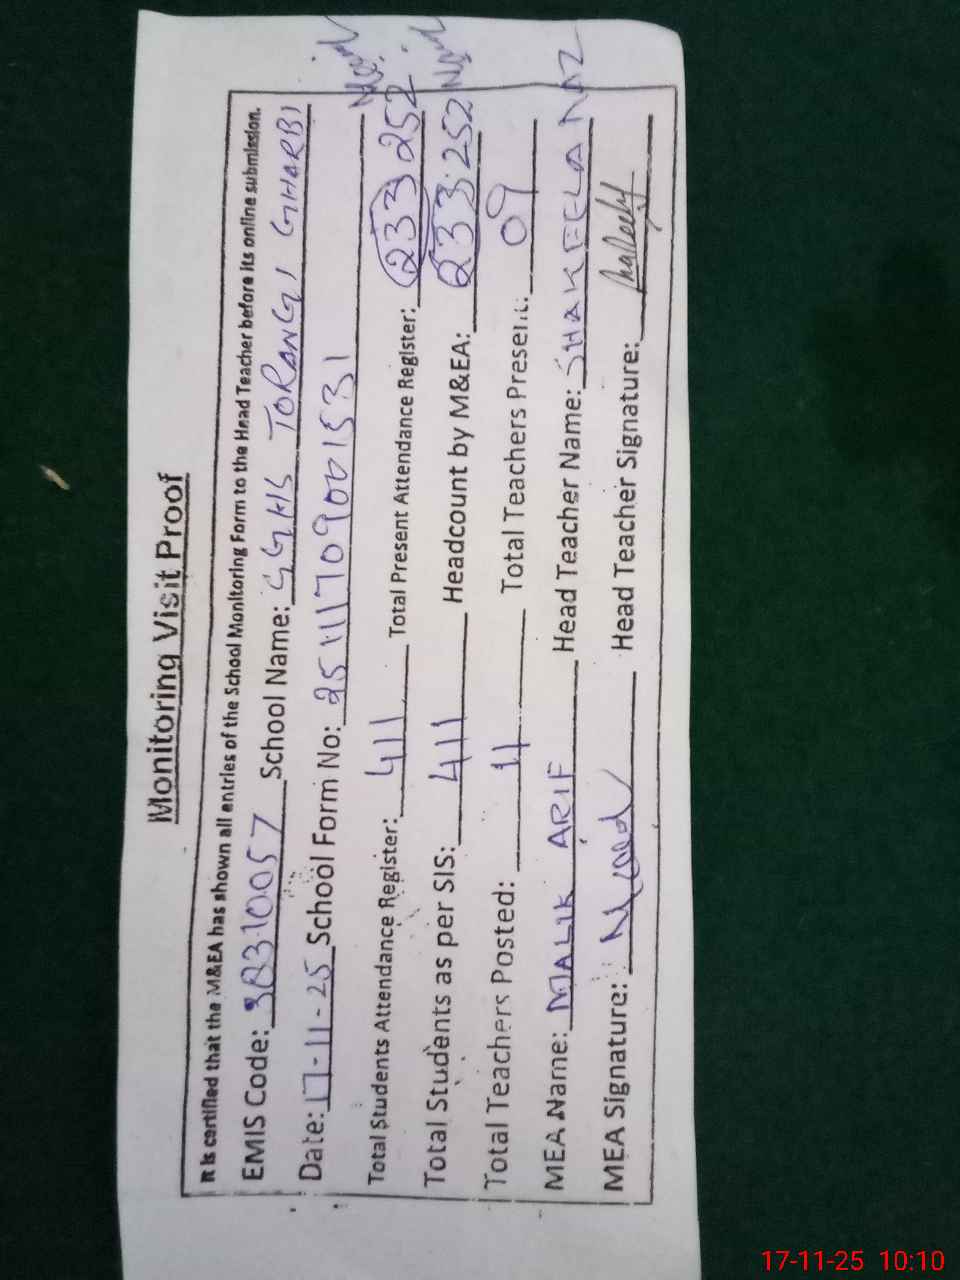 Monitoring Visit Proof
It is certified that the M&EA has shown all entries of the School Monitoring Form to the Head Teacher before its online submission.
EMIS Code: 38310057 School Name: GGHS TORANGI GHARBI
Date: 17-11-25 School Form No: 251117090001531
Total Students Attendance Register: 411 Total Present Attendance Register: 233 252
Total Students as per SIS: 411 Headcount by M&EA: 233 252
Total Teachers Posted: 11 Total Teachers Present: 09
MEA Name: MALIK ARIF Head Teacher Name: SHAKEELA NAZ
MEA Signature: Head Teacher Signature:
17-11-25 10:10